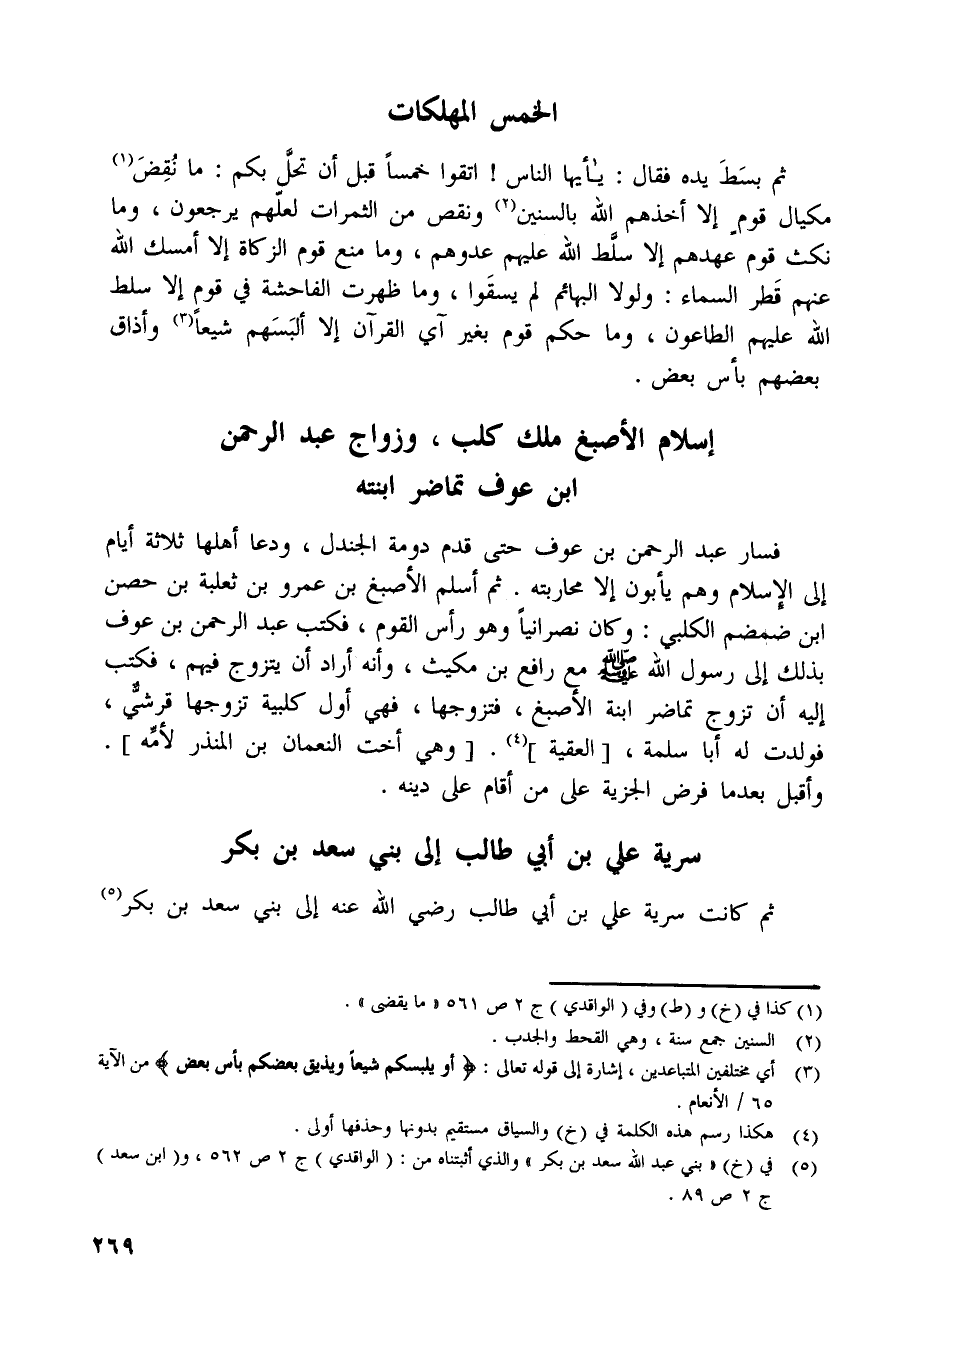 الخمس المهلكات
ثم بسَطَ يده فقال : يـٰأيها الناس ! اتقوا خمساً قبل أن تحلَّ بكم : ما نُقِضَ(١)
مكيال قومٍ إلا أخذهم الله بالسنين(٢) ونقص من الثمرات لعلّهم يرجعون ، وما
نكث قوم عهدهم إلا سلَّط الله عليهم عدوهم ، وما منع قوم الزكاة إلا أمسك الله
عنهم قَطر السماء : ولولا البهائم لم يسقَوا ، وما ظهرت الفاحشة في قوم إلا سلط
الله عليهم الطاعون ، وما حكم قوم بغير آي القرآن إلا ألبَسَهم شيعاً(٣) وأذاق
بعضهم بأس بعض .
إسلام الأصبغ ملك كلب ، وزواج عبد الرحمن
ابن عوف تماضر ابنته
فسار عبد الرحمن بن عوف حتى قدم دومة الجندل ، ودعا أهلها ثلاثة أيام
إلى الإسلام وهم يأبون إلا محاربته . ثم أسلم الأصبغ بن عمرو بن ثعلبة بن حصن
ابن ضمضم الكلبي : وكان نصرانياً وهو رأس القوم ، فكتب عبد الرحمن بن عوف
بذلك إلى رسول الله ﷺ مع رافع بن مكيث ، وأنه أراد أن يتزوج فيهم ، فكتب
إليه أن تزوج تماضر ابنة الأصبغ ، فتزوجها ، فهي أول كلبية تزوجها قرشيٌّ ،
فولدت له أبا سلمة ، [ العقية ](٤) . [ وهي أخت النعمان بن المنذر لأمِّه ] .
وأقبل بعدما فرض الجزية على من أقام على دينه .
سرية علي بن أبي طالب إلى بني سعد بن بكر
ثم كانت سرية علي بن أبي طالب رضي الله عنه إلى بني سعد بن بكر(٥)
(١) كذا في (خ) و (ط) وفي ( الواقدي ) ج ٢ ص ٥٦١ « ما يقضى » .
(٢) السنين جمع سنة ، وهي القحط والجدب .
(٣) أي مختلفين المتباعدين ، إشارة إلى قوله تعالى : ﴿ أو يلبسكم شيعاً ويذيق بعضكم بأس بعض ﴾ من الآية
٦٥ / الأنعام .
(٤) هكذا رسم هذه الكلمة في (خ) والسياق مستقيم بدونها وحذفها أولى .
(٥) في (خ) « بني عبد الله سعد بن بكر » والذي أثبتناه من : ( الواقدي ) ج ٢ ص ٥٦٢ ، و( ابن سعد )
ج ٢ ص ٨٩ .
٢٦٩